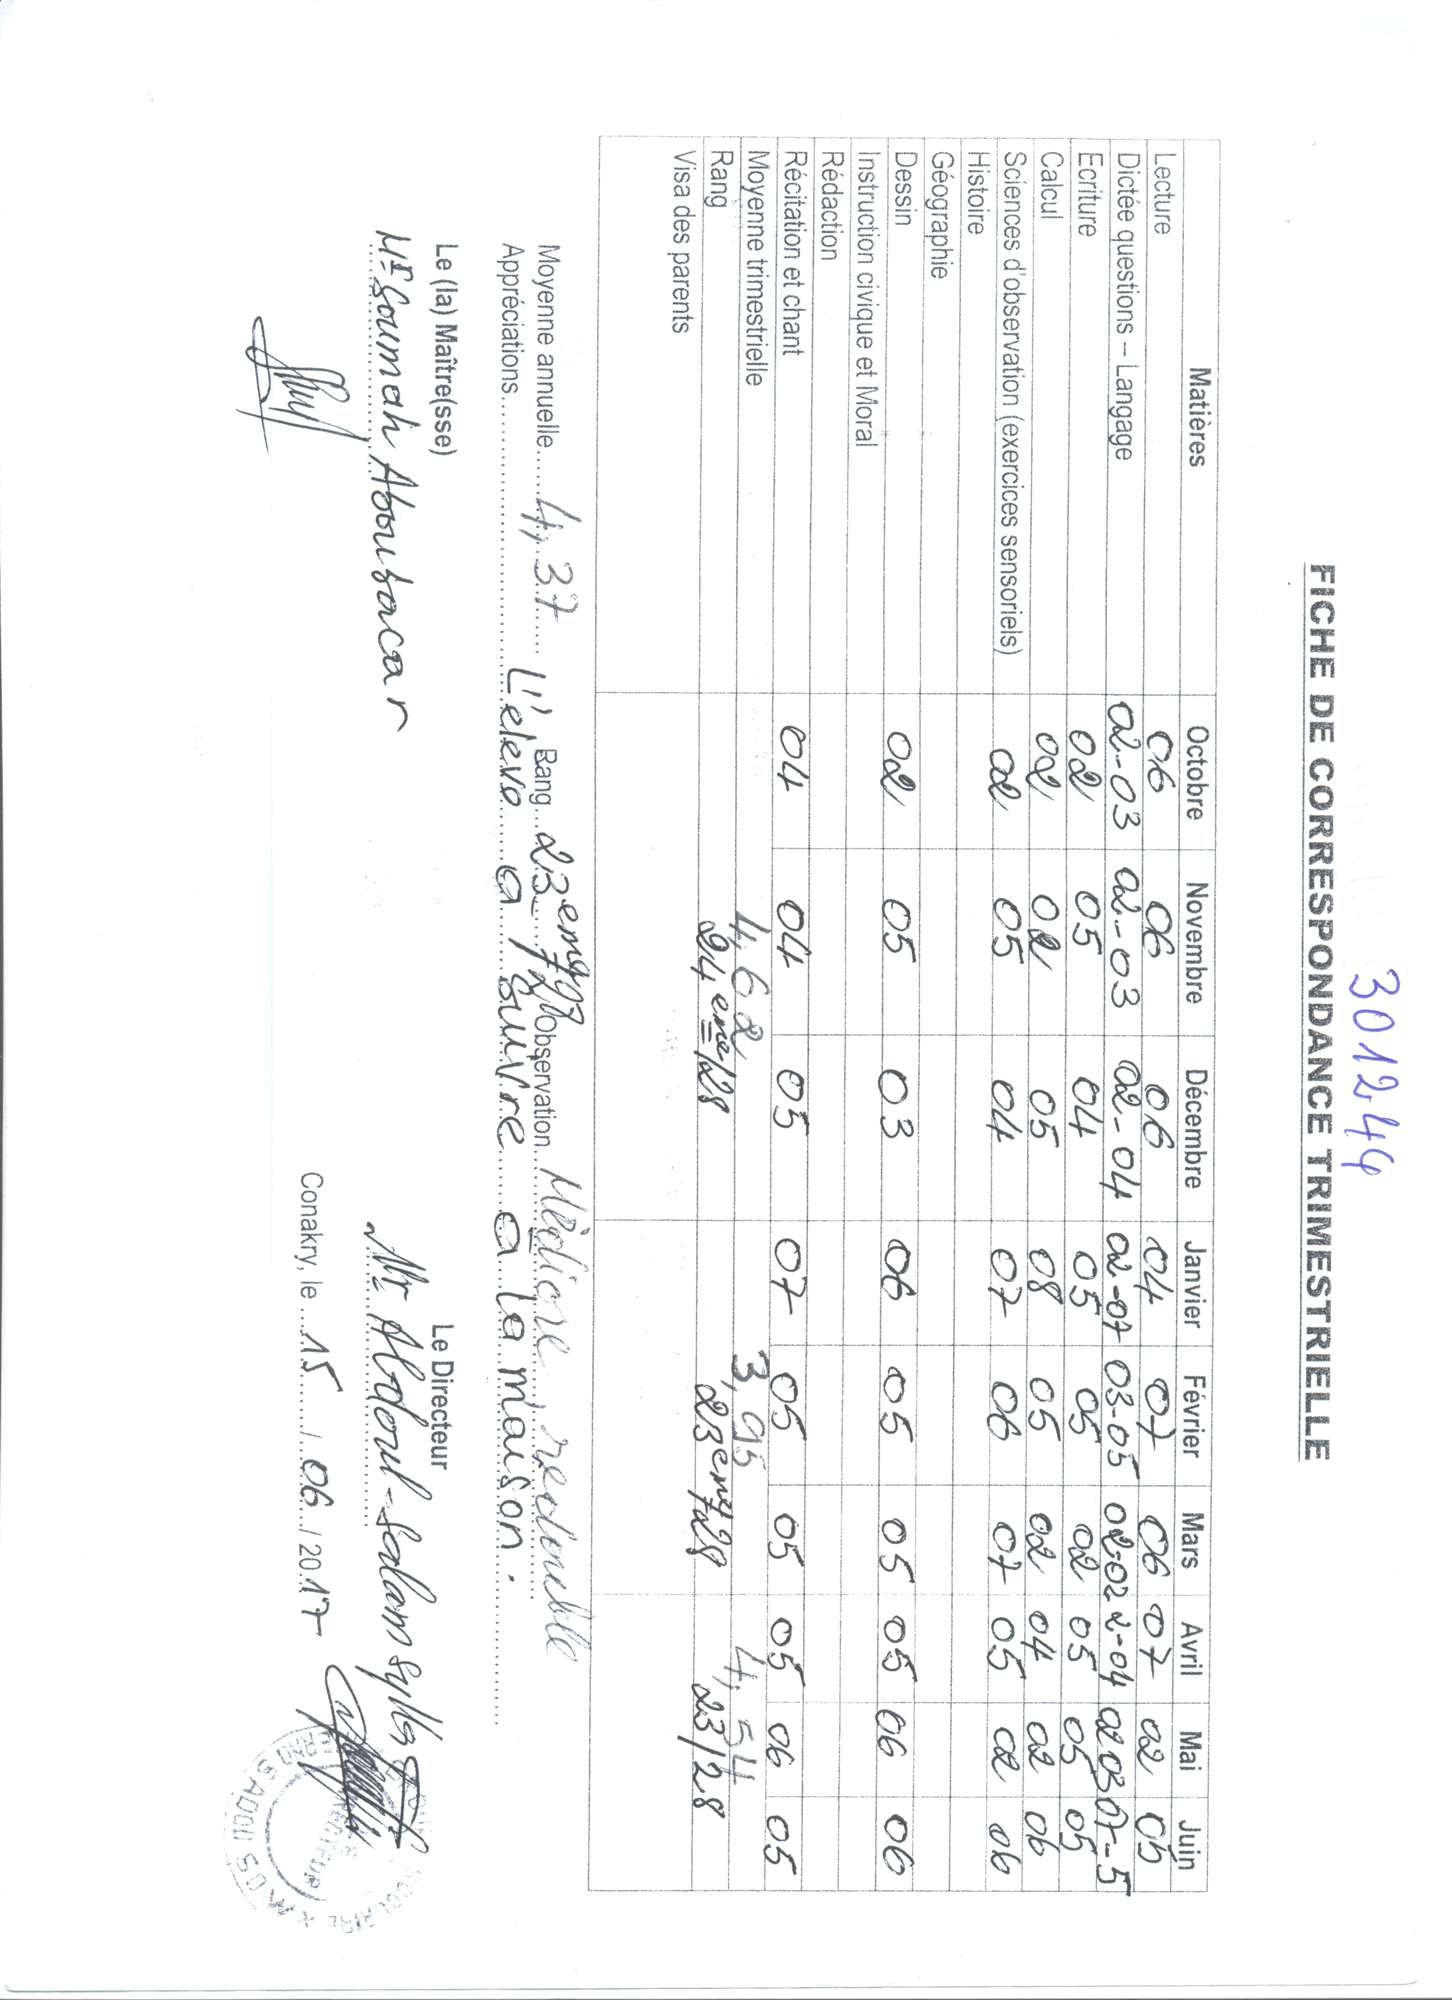 301244
FICHE DE CORRESPONDANCE TRIMESTRIELLE
Matières Octobre Novembre Décembre Janvier Février Mars Avril Mai Juin
Lecture 06 06 06 04 07 06 07 02 05
Dictée questions – Langage 02-03 02-03 02-04 02-07 03-05 02-02 2-04 02 03 07-5
Ecriture 02 05 04 05 05 02 05 05 05
Calcul 02 02 05 08 05 02 04 02 06
Sciences d'observation (exercices sensoriels) 02 05 04 07 06 07 05 02 06
Histoire
Géographie
Dessin 02 05 03 06 05 05 05 06 06
Instruction civique et Moral
Rédaction
Récitation et chant 04 04 05 07 05 05 05 06 05
Moyenne trimestrielle 4,62 3,95 4,54
Rang 24eme/28 23eme/28 23/28
Visa des parents
Moyenne annuelle 4,37 Rang 23eme/28 Observation Médiocre redouble
Appréciations L'éleve a suivre a la maison.
Le (la) Maître(sse) Le Directeur
Mr Soumah Aboubacar Mr Abdoul-Salam Sylla
Conakry, le 15 / 06 / 2017